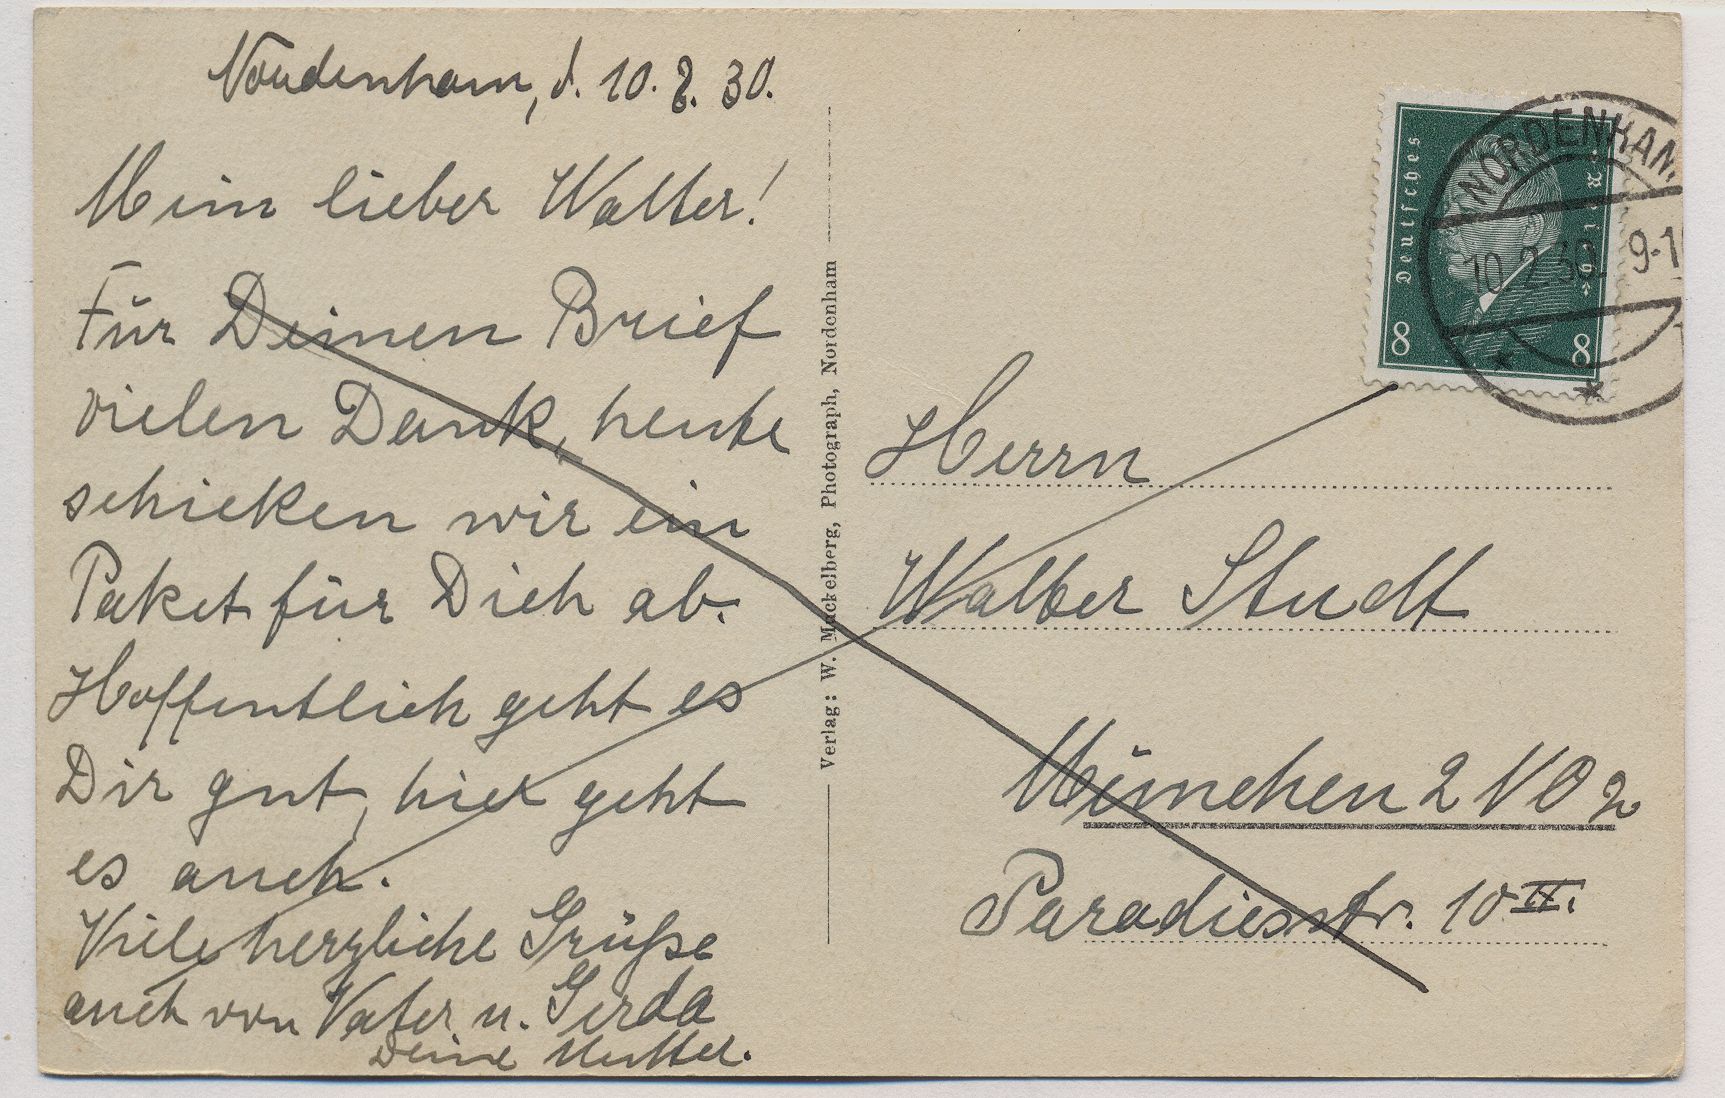 Nordenham, d. 10. 2. 30.
Mein lieber Walter!
Für Deinen Brief
vielen Dank, heute
schicken wir ein
Paket für Dich ab.
Hoffentlich geht es
Dir gut, hier geht
es auch.
Viele herzliche Grüße
auch von Vater u. Gerda
Deine Mutter.
Verlag: W. Muckelberg, Photograph, Nordenham
Deutsches Reich
8 8
NORDENHAM
10.2.30 9-1
Herrn
Walter Studt
München 2 NO 2
Paradiesstr. 10 II.